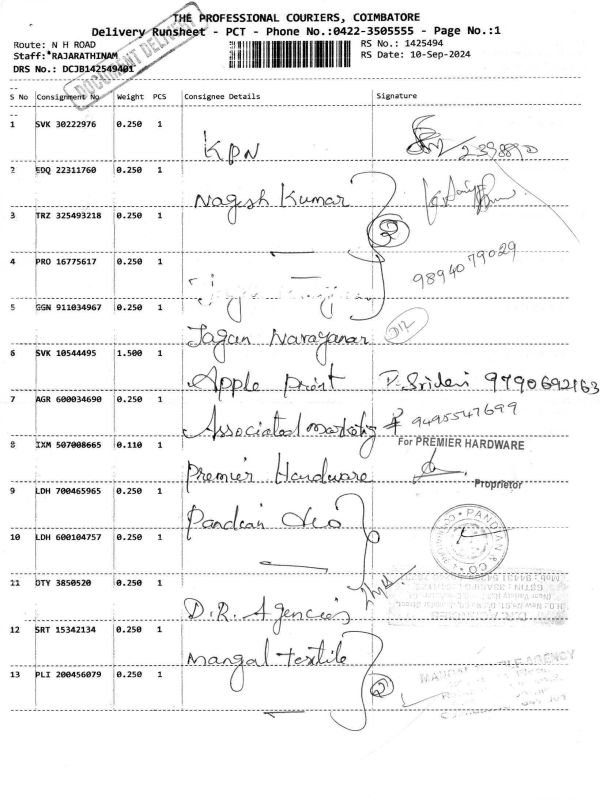 THE PROFESSIONAL COURIERS, COIMBATORE
Delivery Runsheet - PCT - Phone No.:0422-3505555 - Page No.:1
Route: N H ROAD
RS No.: 1425494
Staff:*RAJARATHINAM
RS Date: 10-Sep-2024
DRS No.: DCJB142549401
DOCUMENT DELIVERY
S No Consignment No Weight PCS Consignee Details Signature
1 SVK 30222976 0.250 1
KPN
2 EDQ 22311760 0.250 1
Nagesh Kumar
3 TRZ 325493218 0.250 1
3
4 PRO 16775617 0.250 1
9894079029
5 GGN 911034967 0.250 1
Jagan Narayanan
6 SVK 10544495 1.500 1
Apple Print P. Sridevi 9790692163
7 AGR 600034690 0.250 1
Associated marketing 9495547699
8 IXM 507008665 0.110 1
For PREMIER HARDWARE
Premier Hardware
Proprietor
9 LDH 700465965 0.250 1
Pandian &co
PANDIAN & CO
10 LDH 600104757 0.250 1
11 OTY 3850520 0.250 1
D.R. Agencies
12 SRT 15342134 0.250 1
Mangal textile
13 PLI 200456079 0.250 1
2